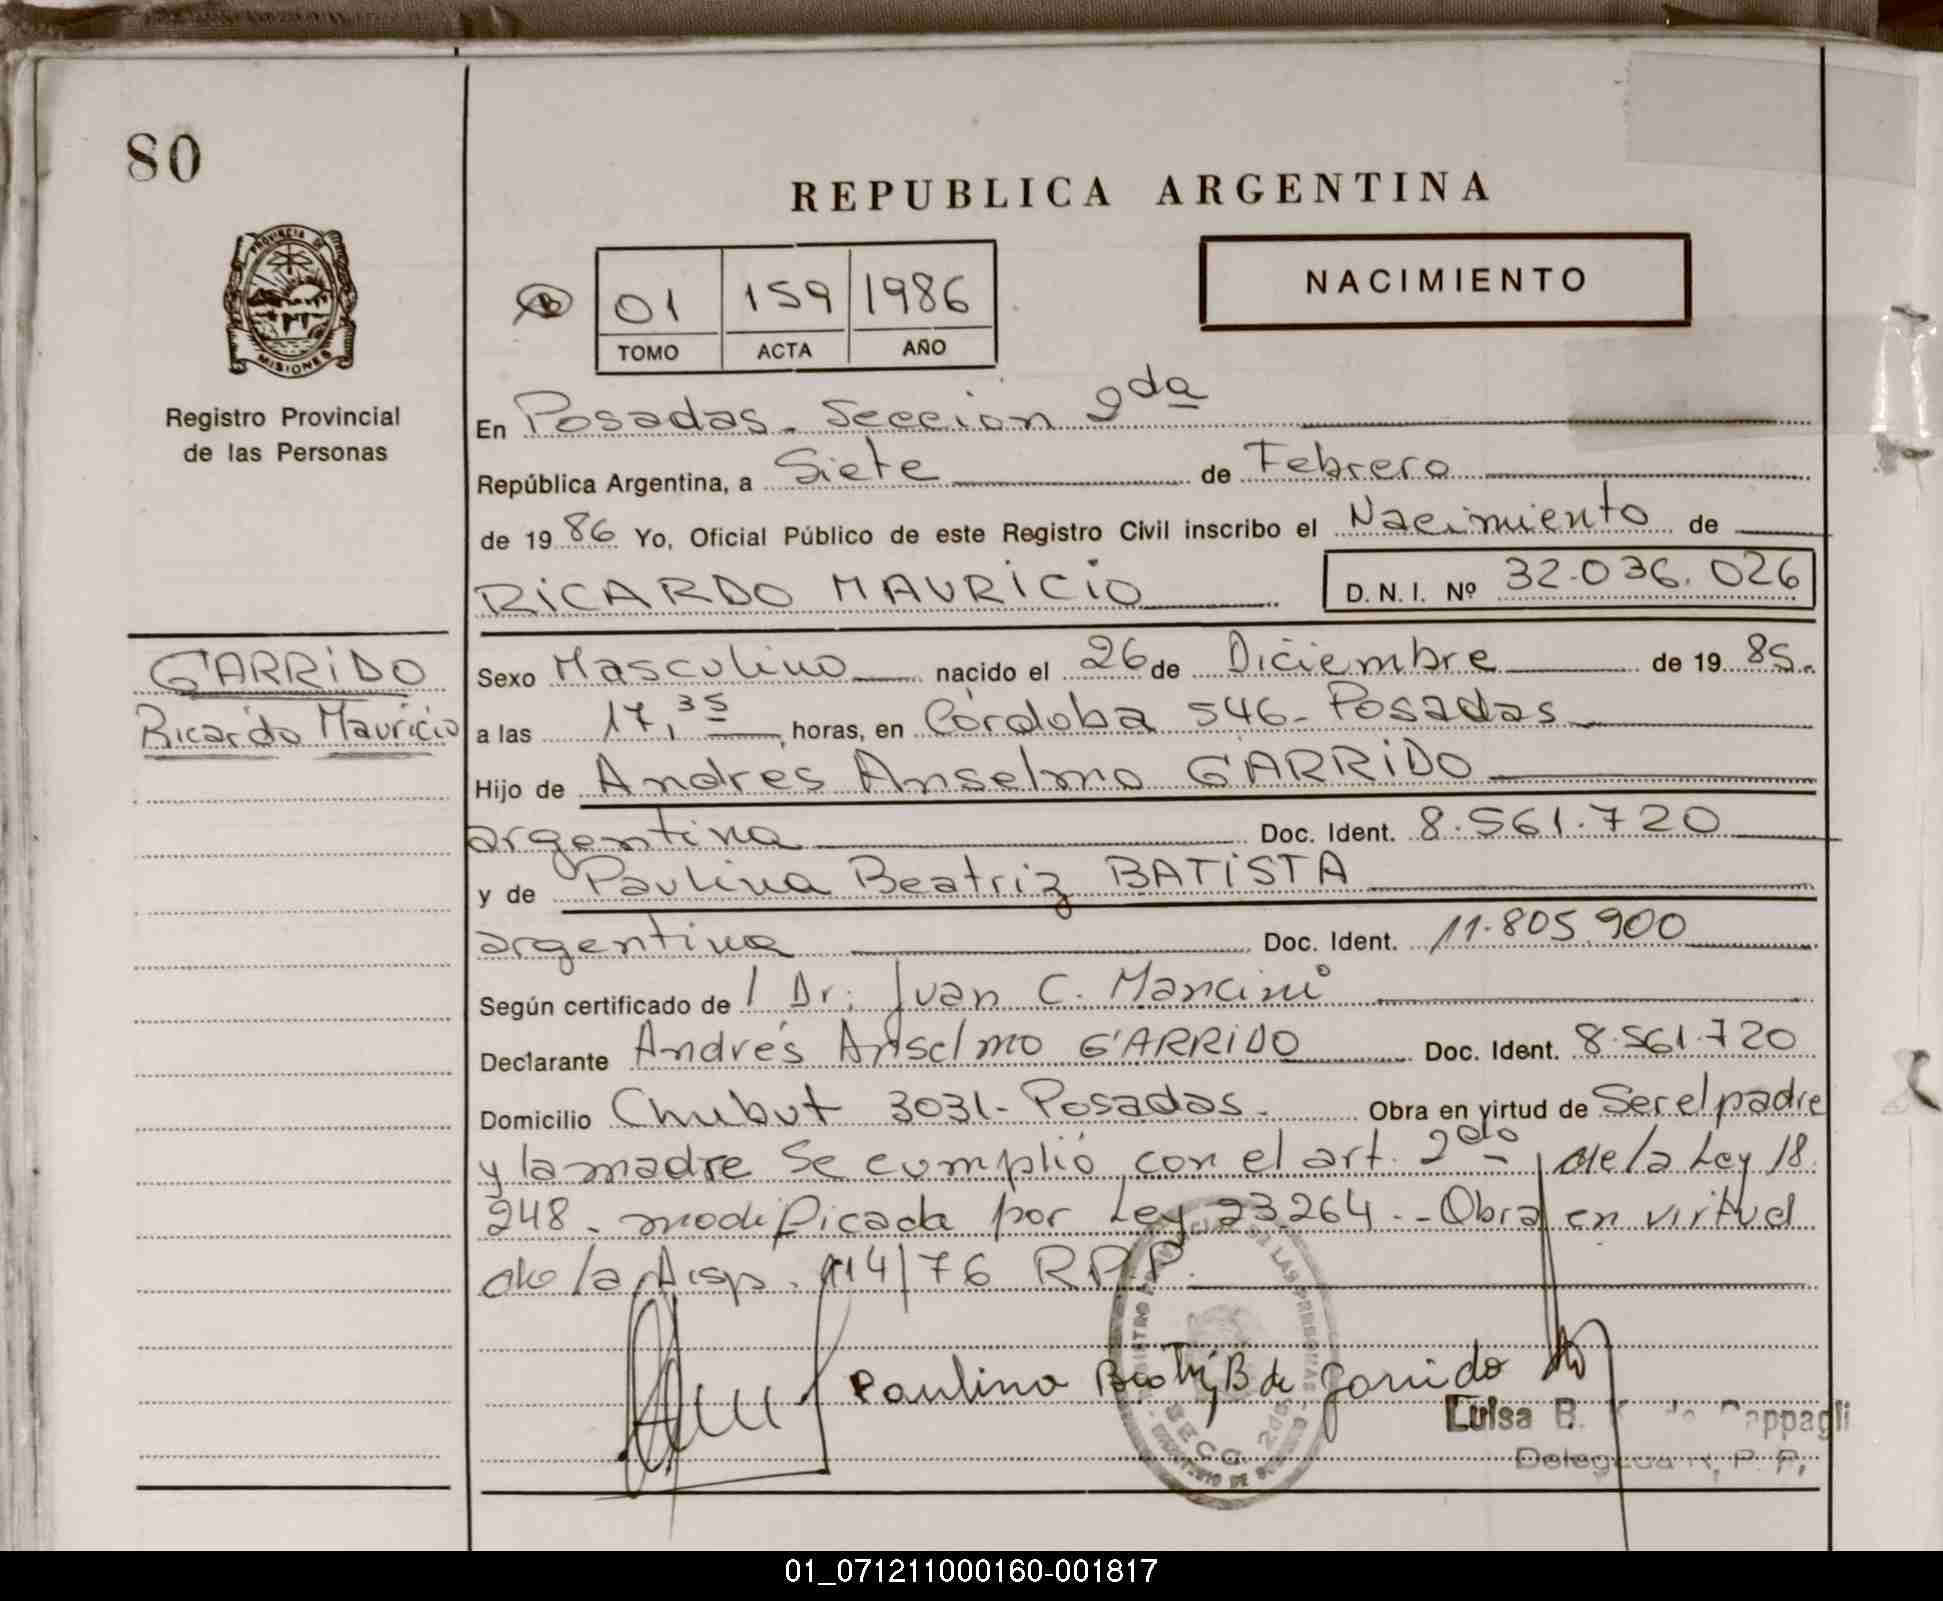 80
REPUBLICA ARGENTINA
PROVINCIA DE
MISIONES
Registro Provincial
de las Personas
01 159 1986
TOMO ACTA AÑO
NACIMIENTO
En Posadas. Sección 2da
República Argentina, a Siete de Febrero
de 1986 Yo, Oficial Público de este Registro Civil inscribo el Nacimiento de
RICARDO MAURICIO D.N.I. Nº 32.036.026
GARRIDO
Ricardo Mauricio
Sexo Masculino nacido el 26 de Diciembre de 1985.
a las 17,35 horas, en Córdoba 546- Posadas
Hijo de Andres Anselmo GARRIDO
argentina Doc. Ident. 8.561.720
y de Paulina Beatriz BATISTA
argentina Doc. Ident. 11.805.900
Según certificado de / Dr; Juan C. Mancini
Declarante Andrés Anselmo GARRIDO Doc. Ident. 8.561.720
Domicilio Chubut 3031- Posadas. Obra en virtud de Ser el padre
y la madre Se cumplió con el art. 2do de la Ley 18.
248. modificada por Ley 23.264.- Obra en virtud
de la Disp. 114/76 R.P.P.
Paulina Beatriz B de Garrido
SECC. 2da
Luisa B. de Cappagli
Delegada R.P.P.
01_071211000160-001817